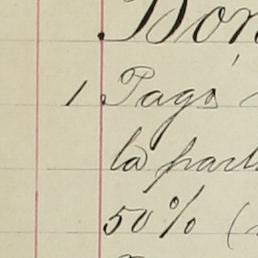 Don
1 Pagó
la part
50% (